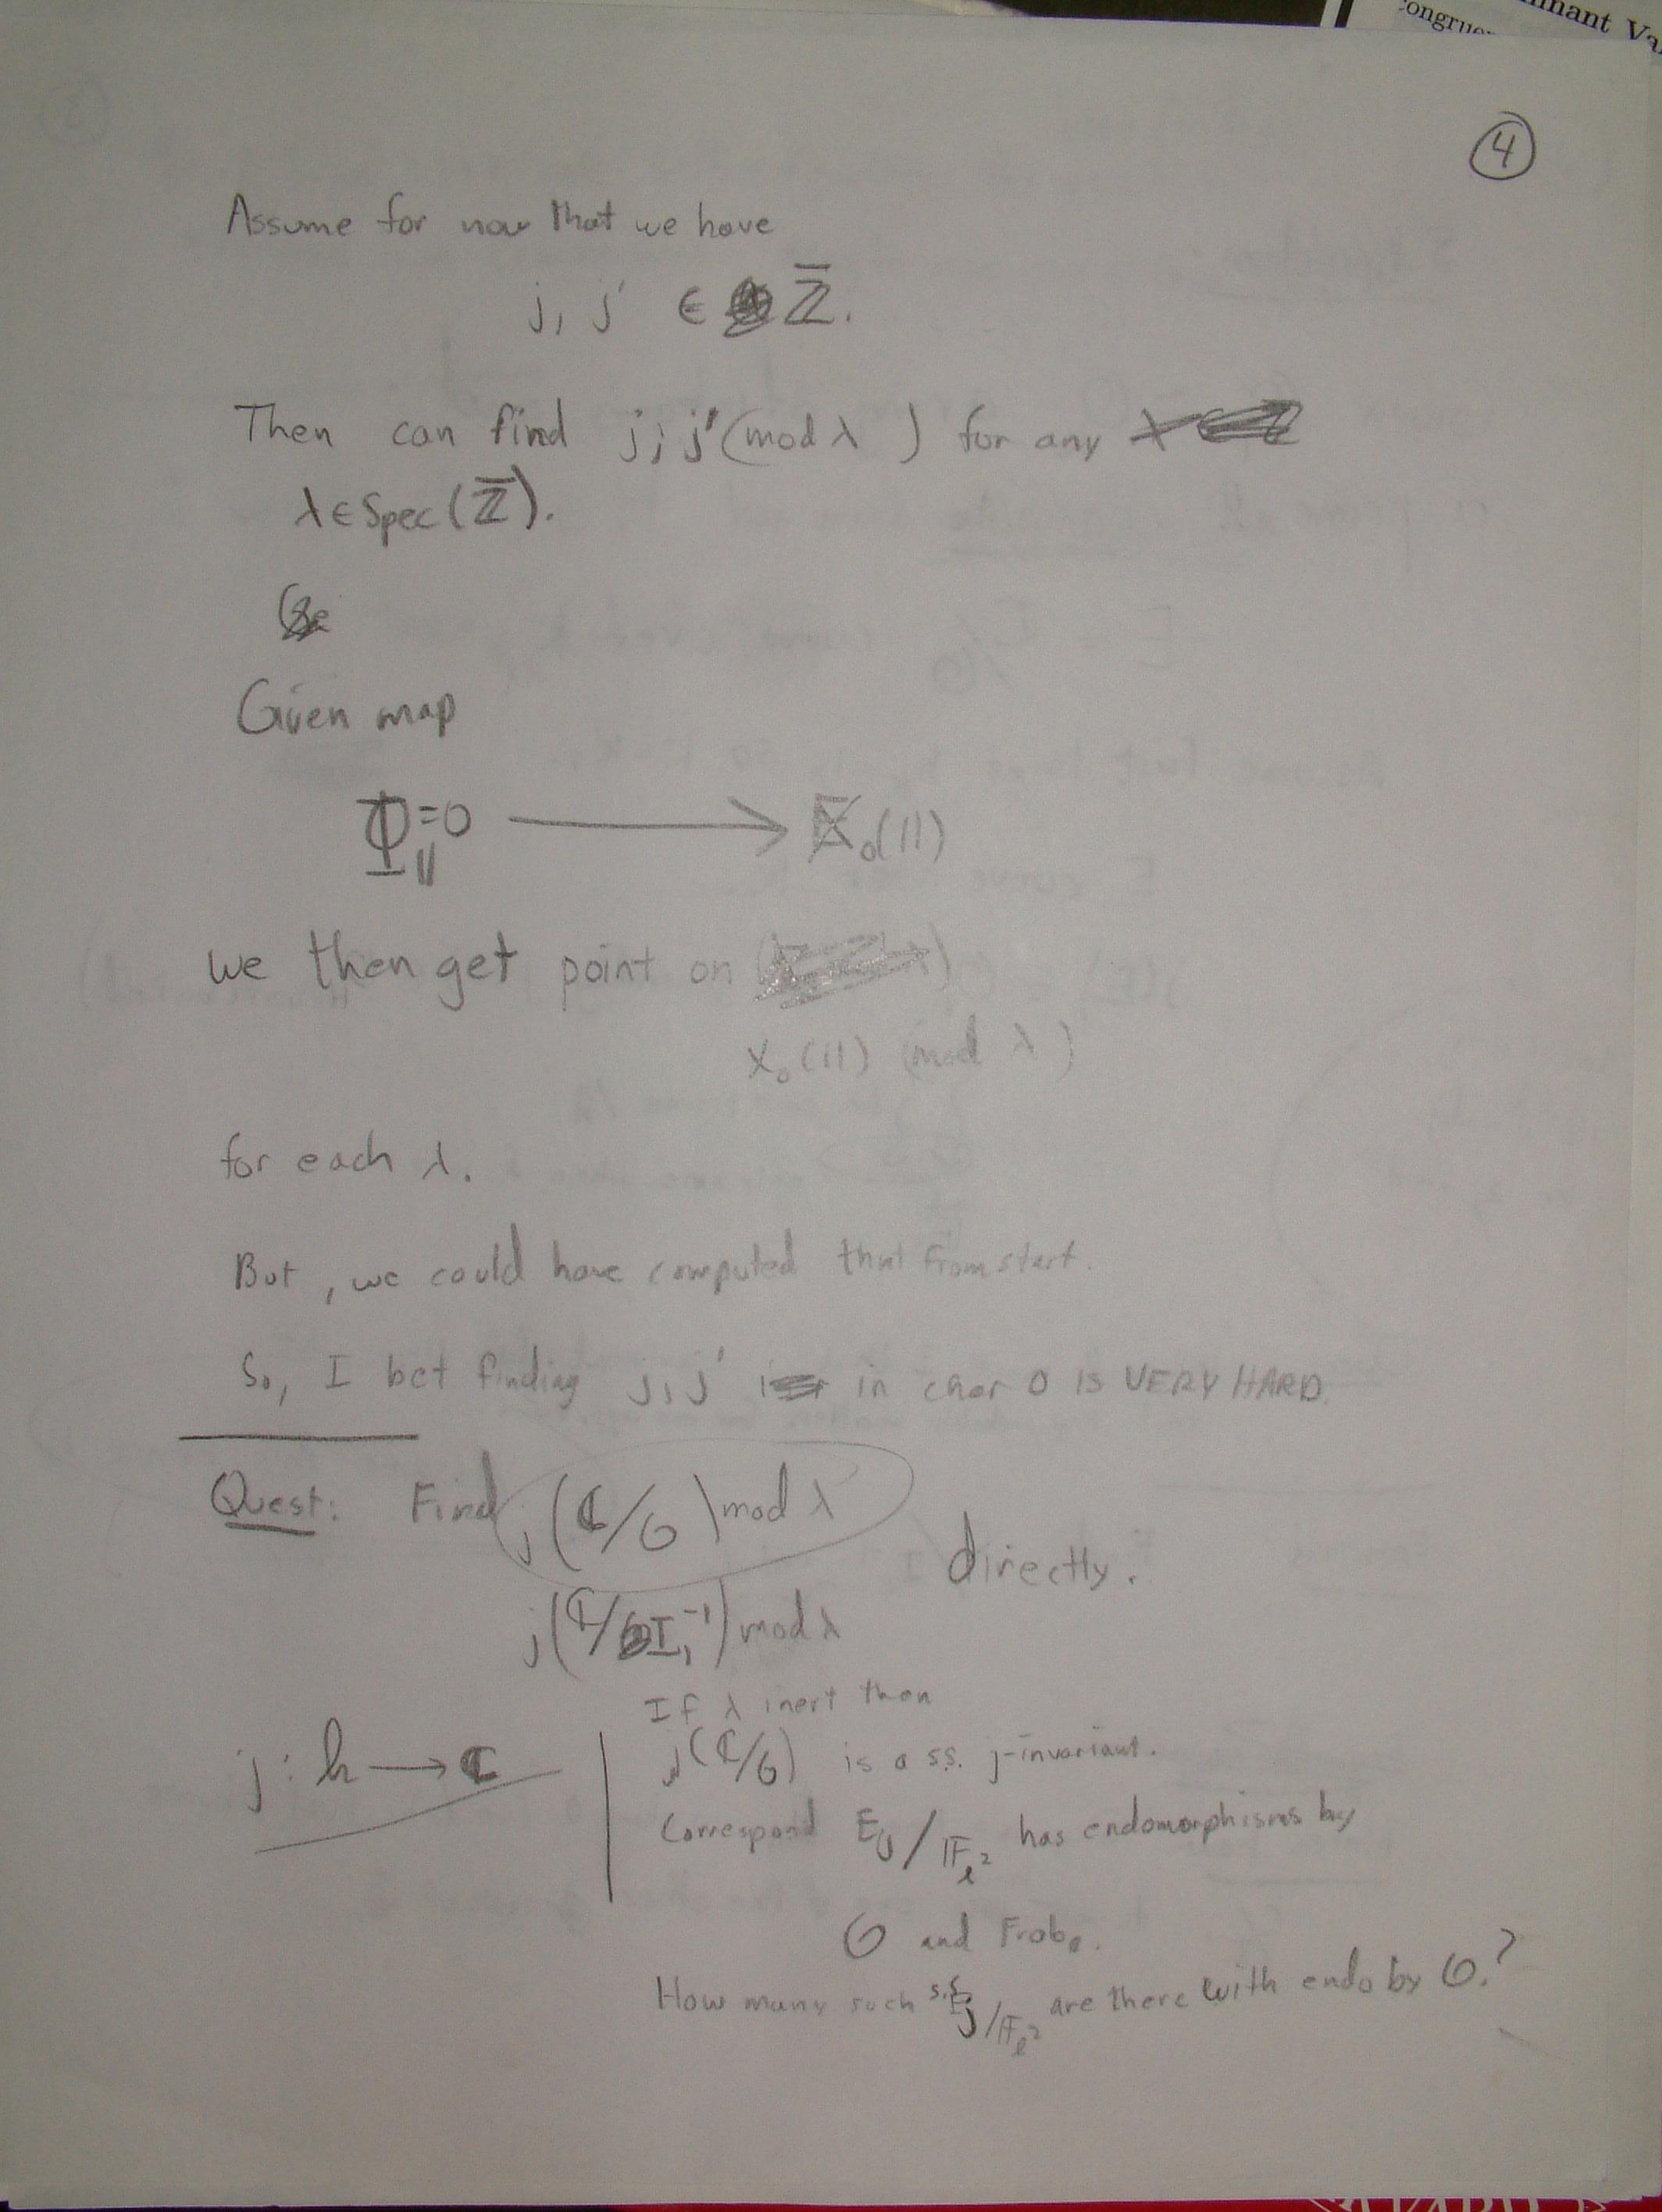 congrue
nant Va
4
Assume for now that we have
j, j' ∈ Z̄.
Then can find j, j' (mod λ) for any
λ ∈ Spec(Z̄).
Given map
Φ₁₁=0 ⟶ X₀(11)
we then get point on
X₀(11) (mod λ)
for each λ.
But, we could have computed that from start.
So, I bet finding j, j' in char 0 IS VERY HARD.
Quest: Find j(ℂ/𝒪) mod λ
directly.
j(ℂ/I₁⁻¹) mod λ
If λ inert then
j: h ⟶ ℂ
j(ℂ/𝒪) is a s.s. j-invariant.
Correspond E_j/𝔽_ℓ² has endomorphisms by
𝒪 and Frob_ℓ.
How many such s.s. E_j/𝔽_ℓ² are there with endo by 𝒪.?